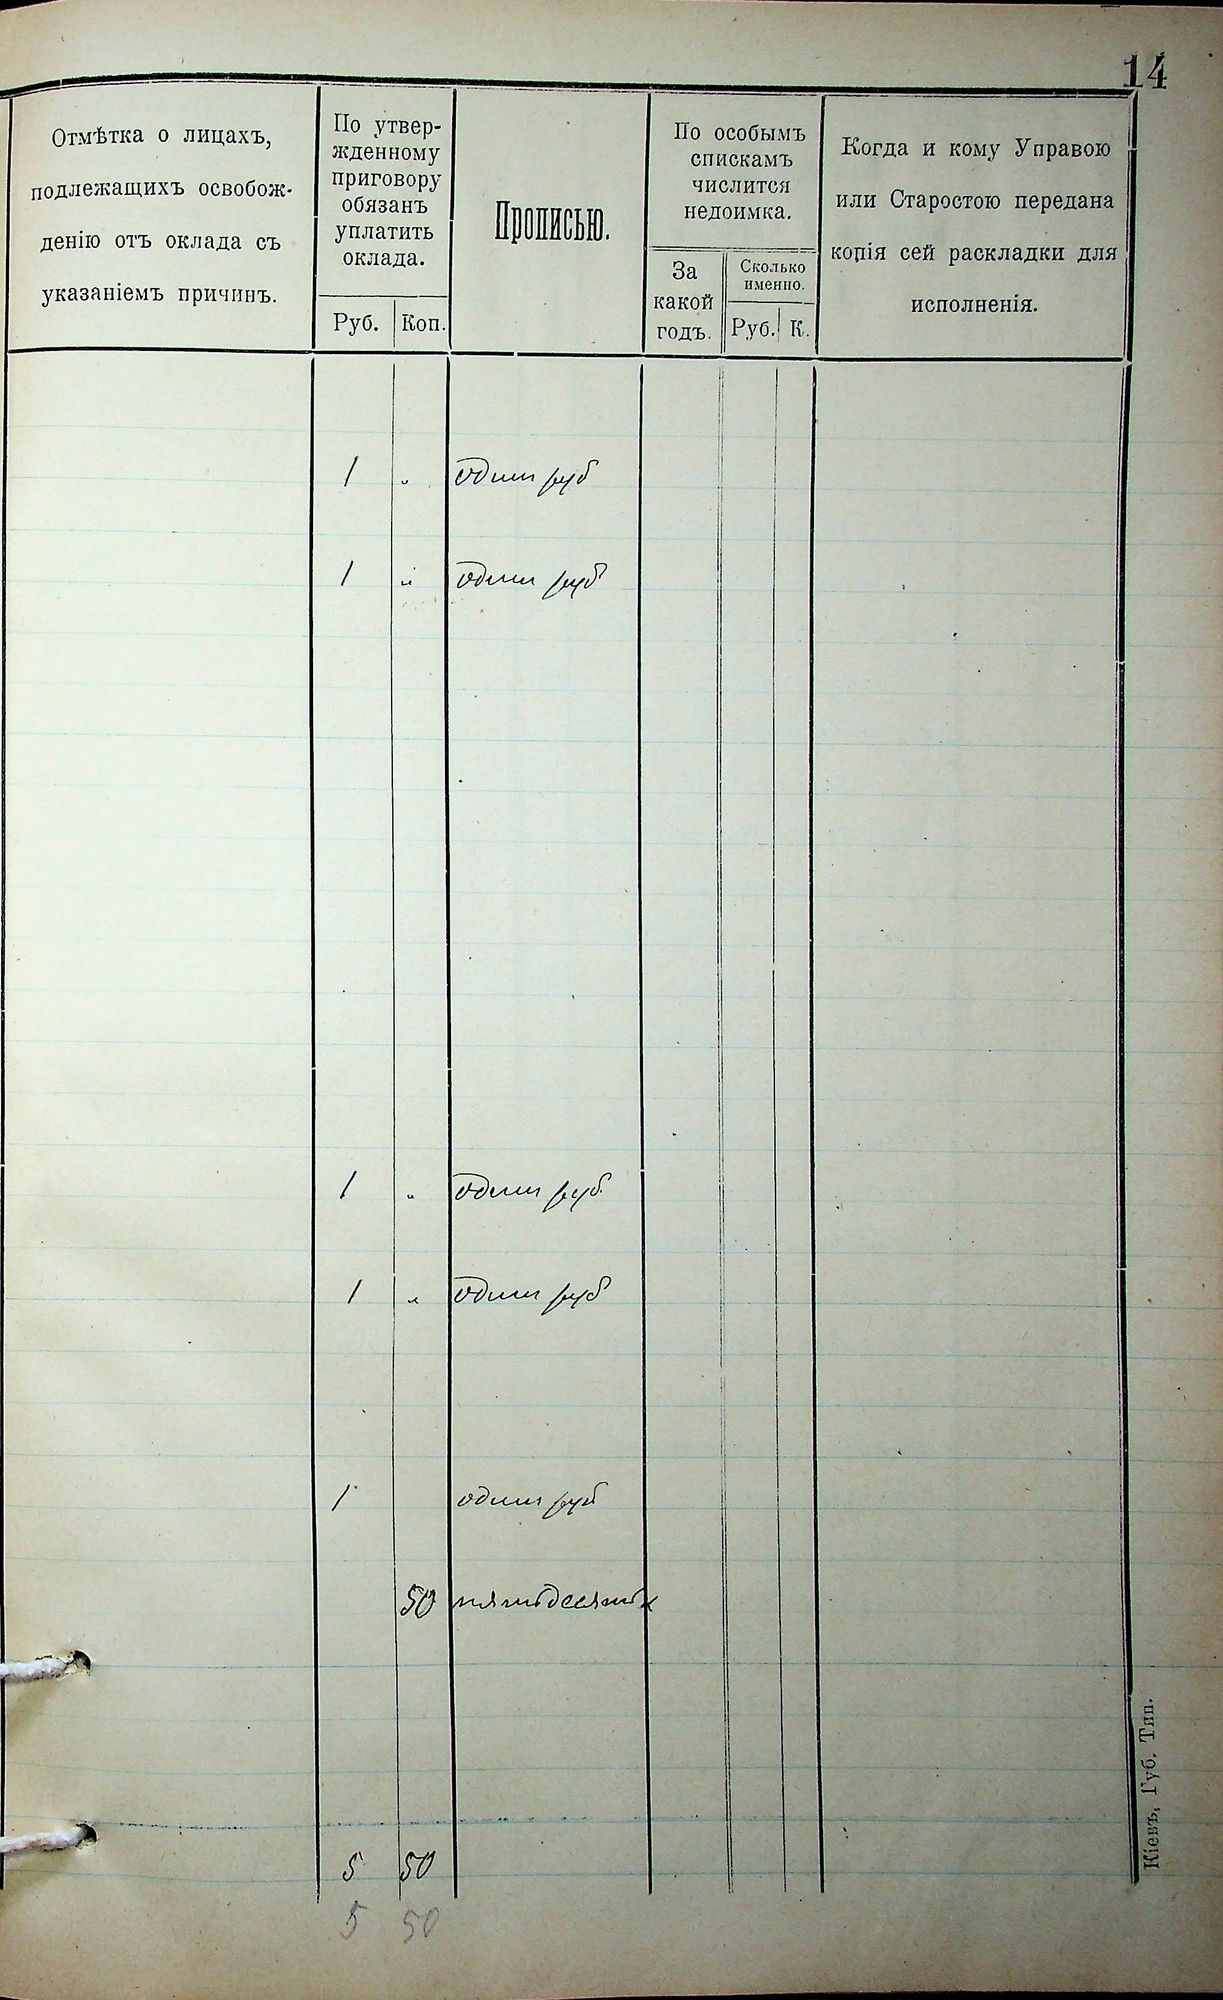 14
Отмѣтка о лицахъ,
подлежащихъ освобож-
денію отъ оклада съ
указаніемъ причинъ.
По утвер-
жденному
приговору
обязанъ
уплатить
оклада.
Руб. Коп.
Прописью.
По особымъ
спискамъ
числится
недоимка.
За
какой
годъ.
Сколько
именно.
Руб. К.
Когда и кому Управою
или Старостою передана
копія сей раскладки для
исполненія.
1 " один руб
1 " один руб
1 " один руб.
1 " один руб
1 один руб
50 пятьдесят к
5 50
5 50
Кіевъ, Губ. Тип.